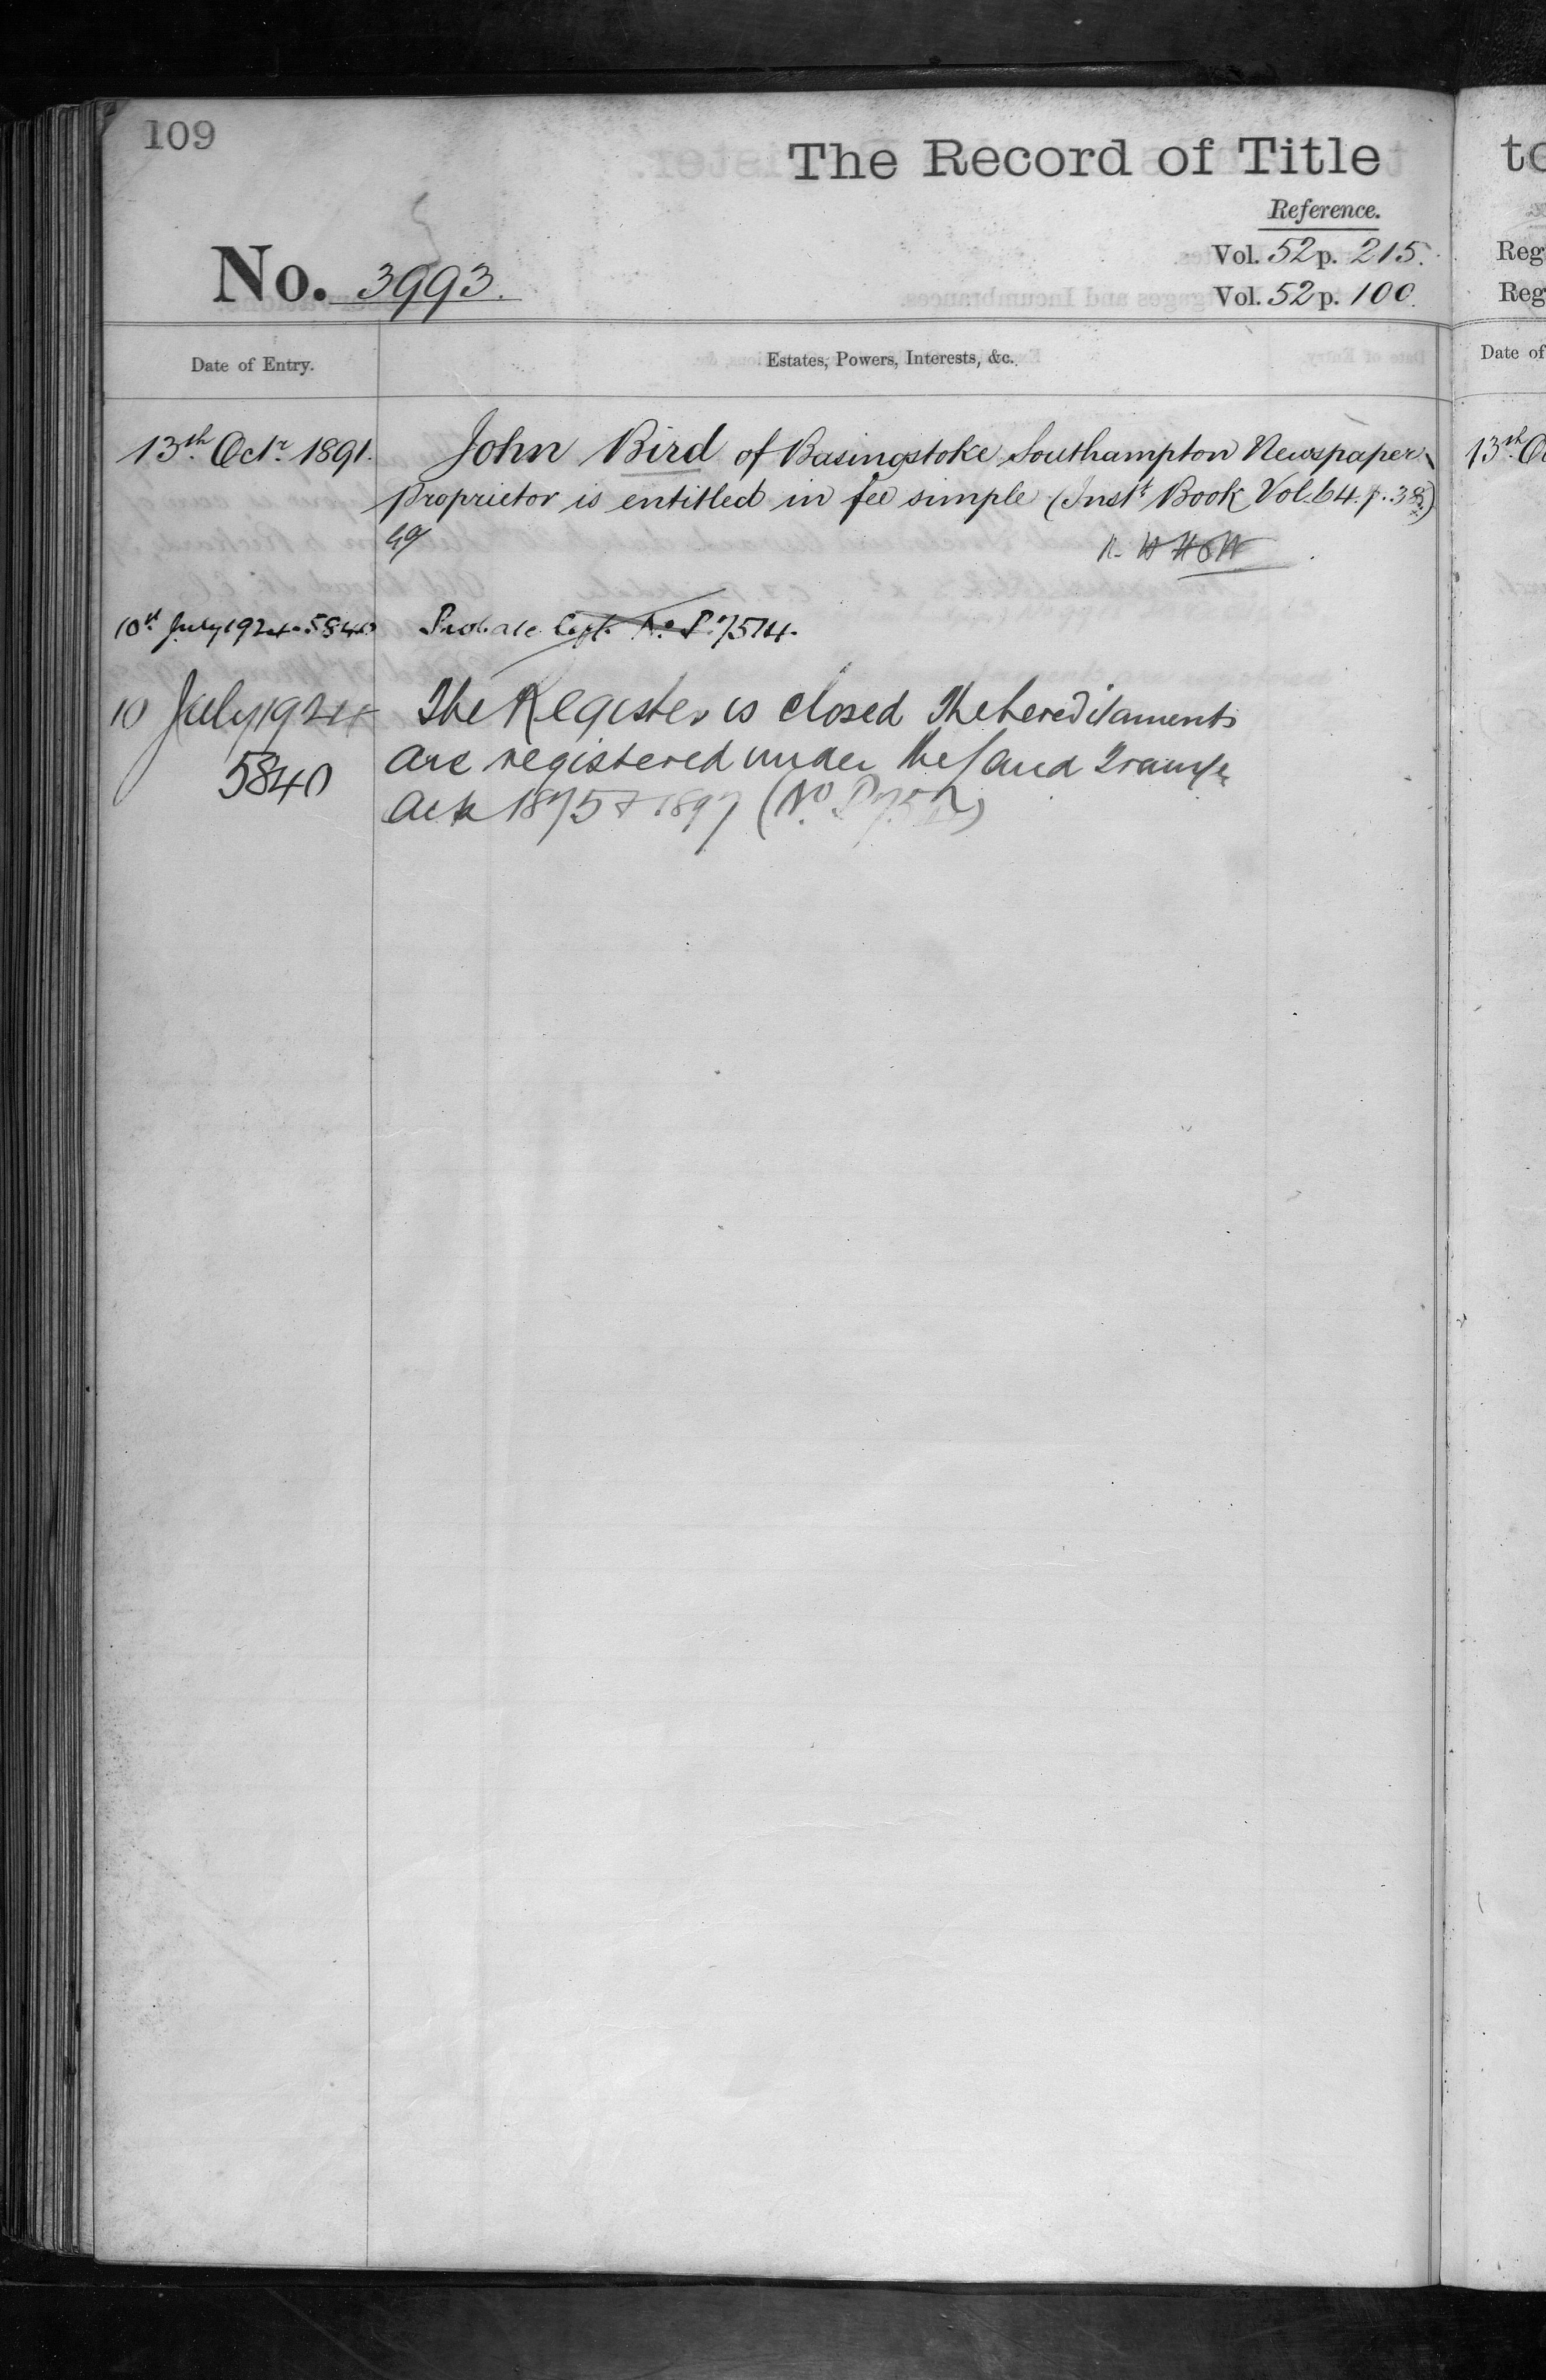 109
The Record of Title
Reference.
No. 3993.
Vol. 52 p. 215.
Vol. 52 p. 100.
Date of Entry.
Estates, Powers, Interests, &c.
13th Octr. 1891.
John Bird of Basingstoke Southampton Newspaper
proprietor is entitled in fee simple (Inst. Book Vol. 64. p. 38.)
10th July 1924. 5840
Probate Dept. No. P.7514.
10 July 1924
5840
The Register is closed The hereditaments
are registered under the Land Transfer
Acts 1875 & 1897 (No.
to
Reg
Reg
Date of
13th Oc